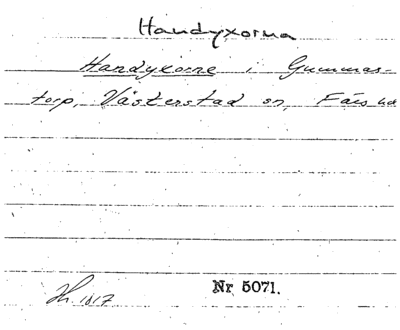 Handyxorna
Handyxorne i Gummas-
torp, Västerstad sn, Färs hd
Hk. 1617.
Nr 5071.